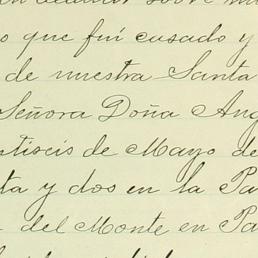 o que fuí casado y
de nuestra Santa
Señora Doña Ang
ntiseis de Mayo de
ta y dos en la Pa
del Monte en Pa